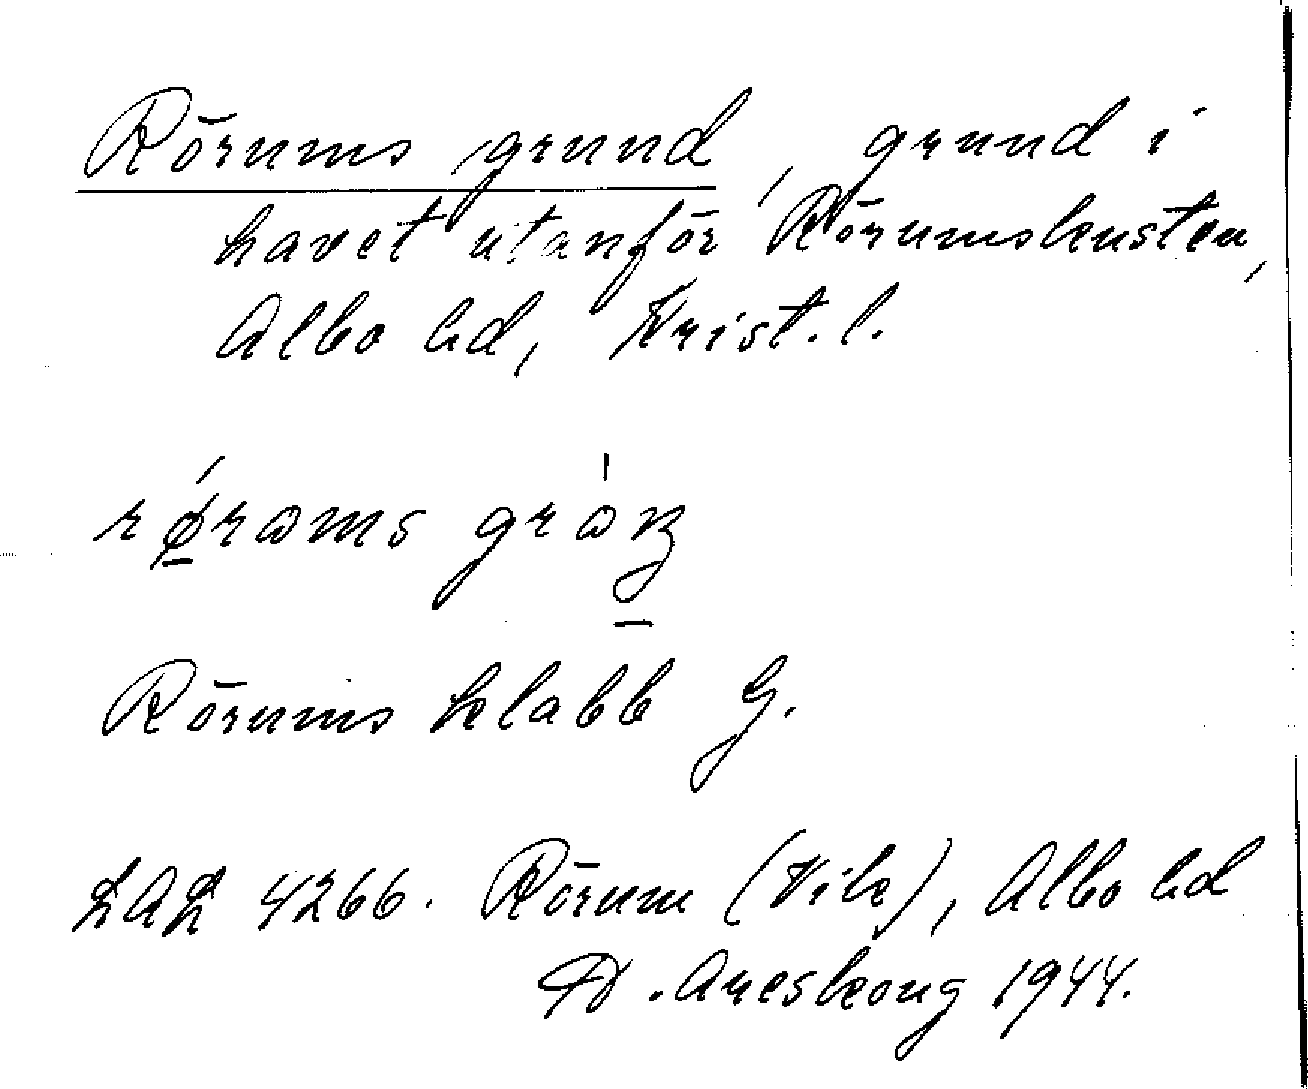 Rörums grund, grund i
havet utanför Rörumskusten,
Albo hd, Krist. l.
Rörums klabb G.
LAL 4266. Rörum (Vik), Albo hd
D. Areskoug 1944.